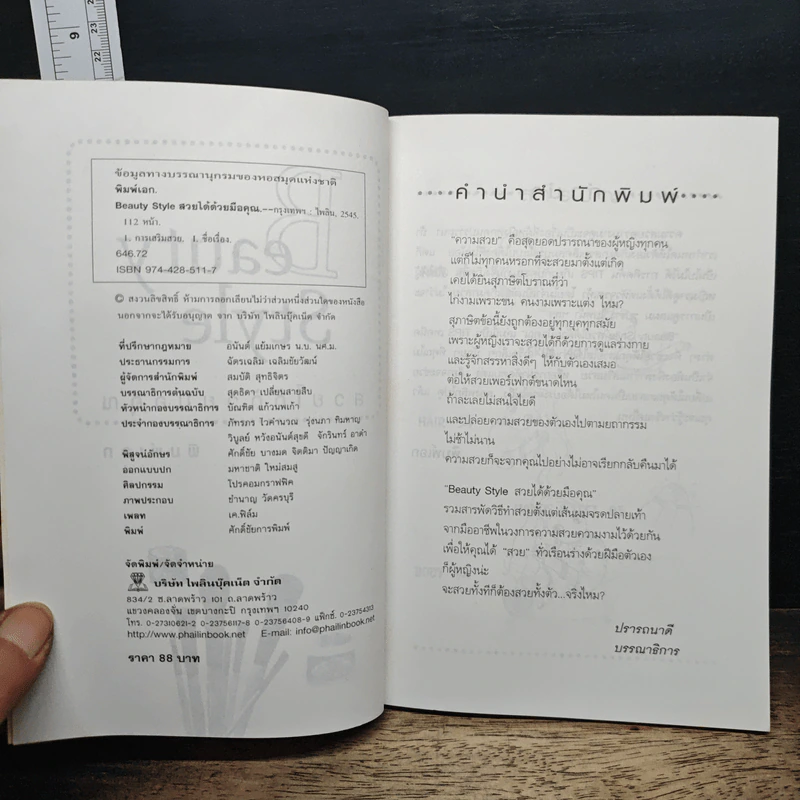 9
22
23
24
ข้อมูลทางบรรณานุกรมของหอสมุดแห่งชาติ
พิมพ์เอก.
Beauty Style สวยได้ด้วยมือคุณ.--กรุงเทพฯ : ไพลิน, 2545.
112 หน้า.
1. การเสริมสวย. I. ชื่อเรื่อง.
646.72
ISBN 974-428-511-7
© สงวนลิขสิทธิ์ ห้ามการลอกเลียนไม่ว่าส่วนหนึ่งส่วนใดของหนังสือ
นอกจากจะได้รับอนุญาต จาก บริษัท ไพลินบุ๊คเน็ต จำกัด
ที่ปรึกษากฎหมาย อนันต์ แย้มเกษร น.บ. นศ.ม.
ประธานกรรมการ ฉัตรเฉลิม เฉลิมชัยวัฒน์
ผู้จัดการสำนักพิมพ์ สมบัติ สุทธิจิตร
บรรณาธิการต้นฉบับ สุดธิดา เปลี่ยนสายสืบ
หัวหน้ากองบรรณาธิการ บัณฑิต แก้วนพเก้า
ประจำกองบรรณาธิการ ภัทรภร ไวคำนวณ รุ่งนภา ทิมหาญ
วิบูลย์ หวังอนันต์สุขดี จักรินทร์ อาดำ
พิสูจน์อักษร ศักดิ์ชัย บางมด จิตติมา ปัญญาเกิด
ออกแบบปก มหาชาติ ใหม่สมสู่
ศิลปกรรม โปรคอมกราฟฟิค
ภาพประกอบ ชำนาญ วัดครบุรี
เพลท เค.ฟิล์ม
พิมพ์ ศักดิ์ชัยการพิมพ์
จัดพิมพ์/จัดจำหน่าย
บริษัท ไพลินบุ๊คเน็ต จำกัด
834/2 ซ.ลาดพร้าว 101 ถ.ลาดพร้าว
แขวงคลองจั่น เขตบางกะปิ กรุงเทพฯ 10240
โทร. 0-27310621-2 0-23756117-8 0-23756408-9 แฟ็กซ์. 0-23754313
http://www.phailinbook.net E-mail: info@phailinbook.net
ราคา 88 บาท
คำนำสำนักพิมพ์
"ความสวย" คือสุดยอดปรารถนาของผู้หญิงทุกคน
แต่ก็ไม่ทุกคนหรอกที่จะสวยมาตั้งแต่เกิด
เคยได้ยินสุภาษิตโบราณที่ว่า
ไก่งามเพราะขน คนงามเพราะแต่ง ไหม?
สุภาษิตข้อนี้ยังถูกต้องอยู่ทุกยุคทุกสมัย
เพราะผู้หญิงเราจะสวยได้ก็ด้วยการดูแลร่างกาย
และรู้จักสรรหาสิ่งดีๆ ให้กับตัวเองเสมอ
ต่อให้สวยเพอร์เฟกต์ขนาดไหน
ถ้าละเลยไม่สนใจไยดี
และปล่อยความสวยของตัวเองไปตามยถากรรม
ไม่ช้าไม่นาน
ความสวยก็จะจากคุณไปอย่างไม่อาจเรียกกลับคืนมาได้
"Beauty Style สวยได้ด้วยมือคุณ"
รวมสารพัดวิธีทำสวยตั้งแต่เส้นผมจรดปลายเท้า
จากมืออาชีพในวงการความสวยความงามไว้ด้วยกัน
เพื่อให้คุณได้ "สวย" ทั่วเรือนร่างด้วยฝีมือตัวเอง
ก็ผู้หญิงน่ะ
จะสวยทั้งทีก็ต้องสวยทั้งตัว...จริงไหม?
ปรารถนาดี
บรรณาธิการ